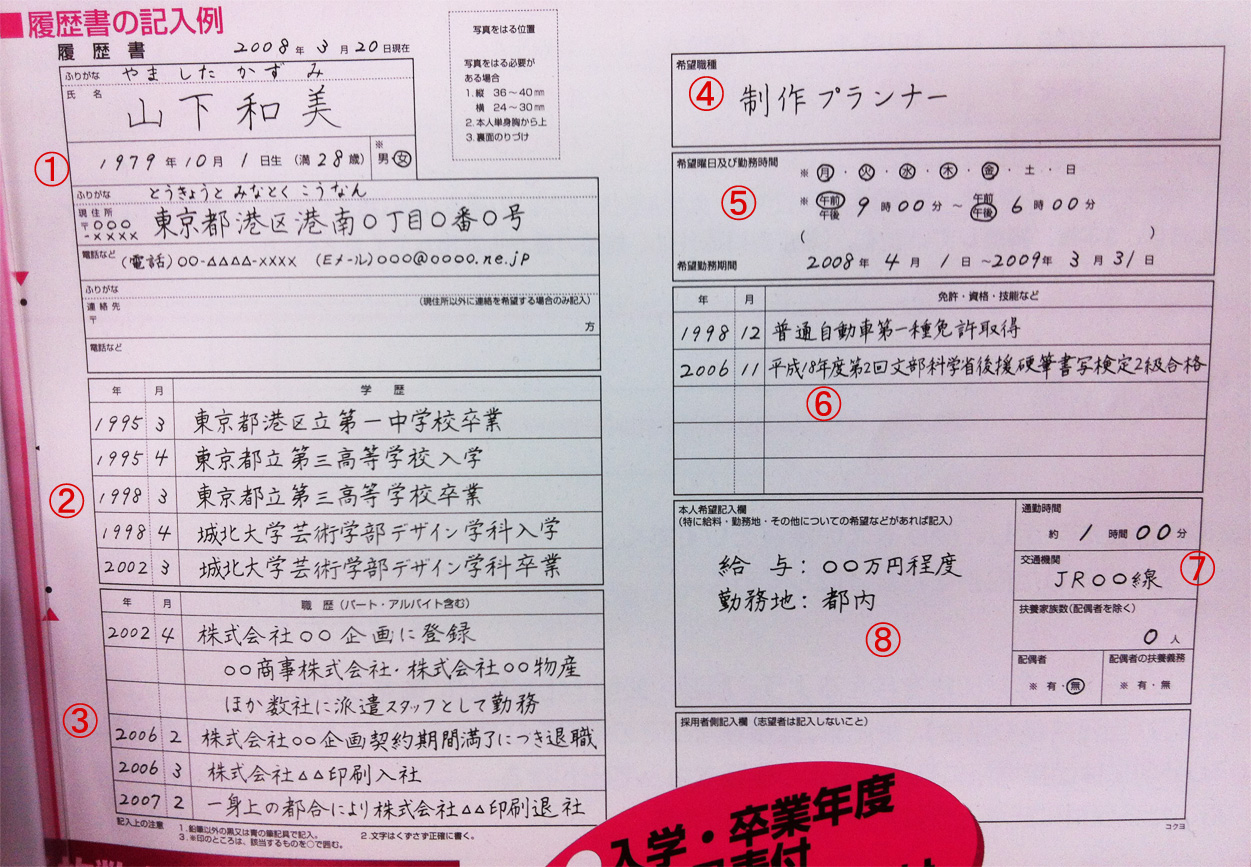 ■履歴書の記入例
履歴書 2008年3月20日現在
ふりがな やました かずみ
氏名 山下和美
① 1979年10月1日生(満28歳) ※男・女
写真をはる位置
写真をはる必要が
ある場合
1.縦 36～40㎜
横 24～30㎜
2.本人単身胸から上
3.裏面のりづけ
ふりがな とうきょうと みなとく こうなん
現住所
〒○○○-××××
東京都港区港南○丁目○番○号
電話など (電話)○○-△△△△-×××× (Eメール)○○○@○○○○.ne.jp
ふりがな
連絡先 (現住所以外に連絡を希望する場合のみ記入)
〒
方
電話など
年 月 学歴
1995 3 東京都港区立第一中学校卒業
1995 4 東京都立第三高等学校入学
② 1998 3 東京都立第三高等学校卒業
1998 4 城北大学芸術学部デザイン学科入学
2002 3 城北大学芸術学部デザイン学科卒業
年 月 職歴(パート・アルバイト含む)
2002 4 株式会社○○企画に登録
○○商事株式会社・株式会社○○物産
③ ほか数社に派遣スタッフとして勤務
2006 2 株式会社○○企画契約期間満了につき退職
2006 3 株式会社△△印刷入社
2007 2 一身上の都合により株式会社△△印刷退社
記入上の注意 1.鉛筆以外の黒又は青の筆記具で記入。 2.文字はくずさず正確に書く。
3.※印のところは、該当するものを○で囲む。
希望職種
④ 制作プランナー
希望曜日及び勤務時間
※ 月・火・水・木・金・土・日
⑤ ※ 午前 午後 9時00分～午前 午後 6時00分
( )
希望勤務期間 2008年4月1日～2009年3月31日
年 月 免許・資格・技能など
1998 12 普通自動車第一種免許取得
2006 11 平成18年度第2回文部科学省後援硬筆書写検定2級合格
⑥
本人希望記入欄
(特に給料・勤務地・その他についての希望などがあれば記入)
給与:○○万円程度
勤務地:都内
⑧
通勤時間
約1時間00分
交通機関 ⑦
JR○○線
扶養家族数(配偶者を除く)
0人
配偶者 配偶者の扶養義務
※ 有・無 ※ 有・無
採用者側記入欄(志望者は記入しないこと)
コクヨ
入学・卒業年度